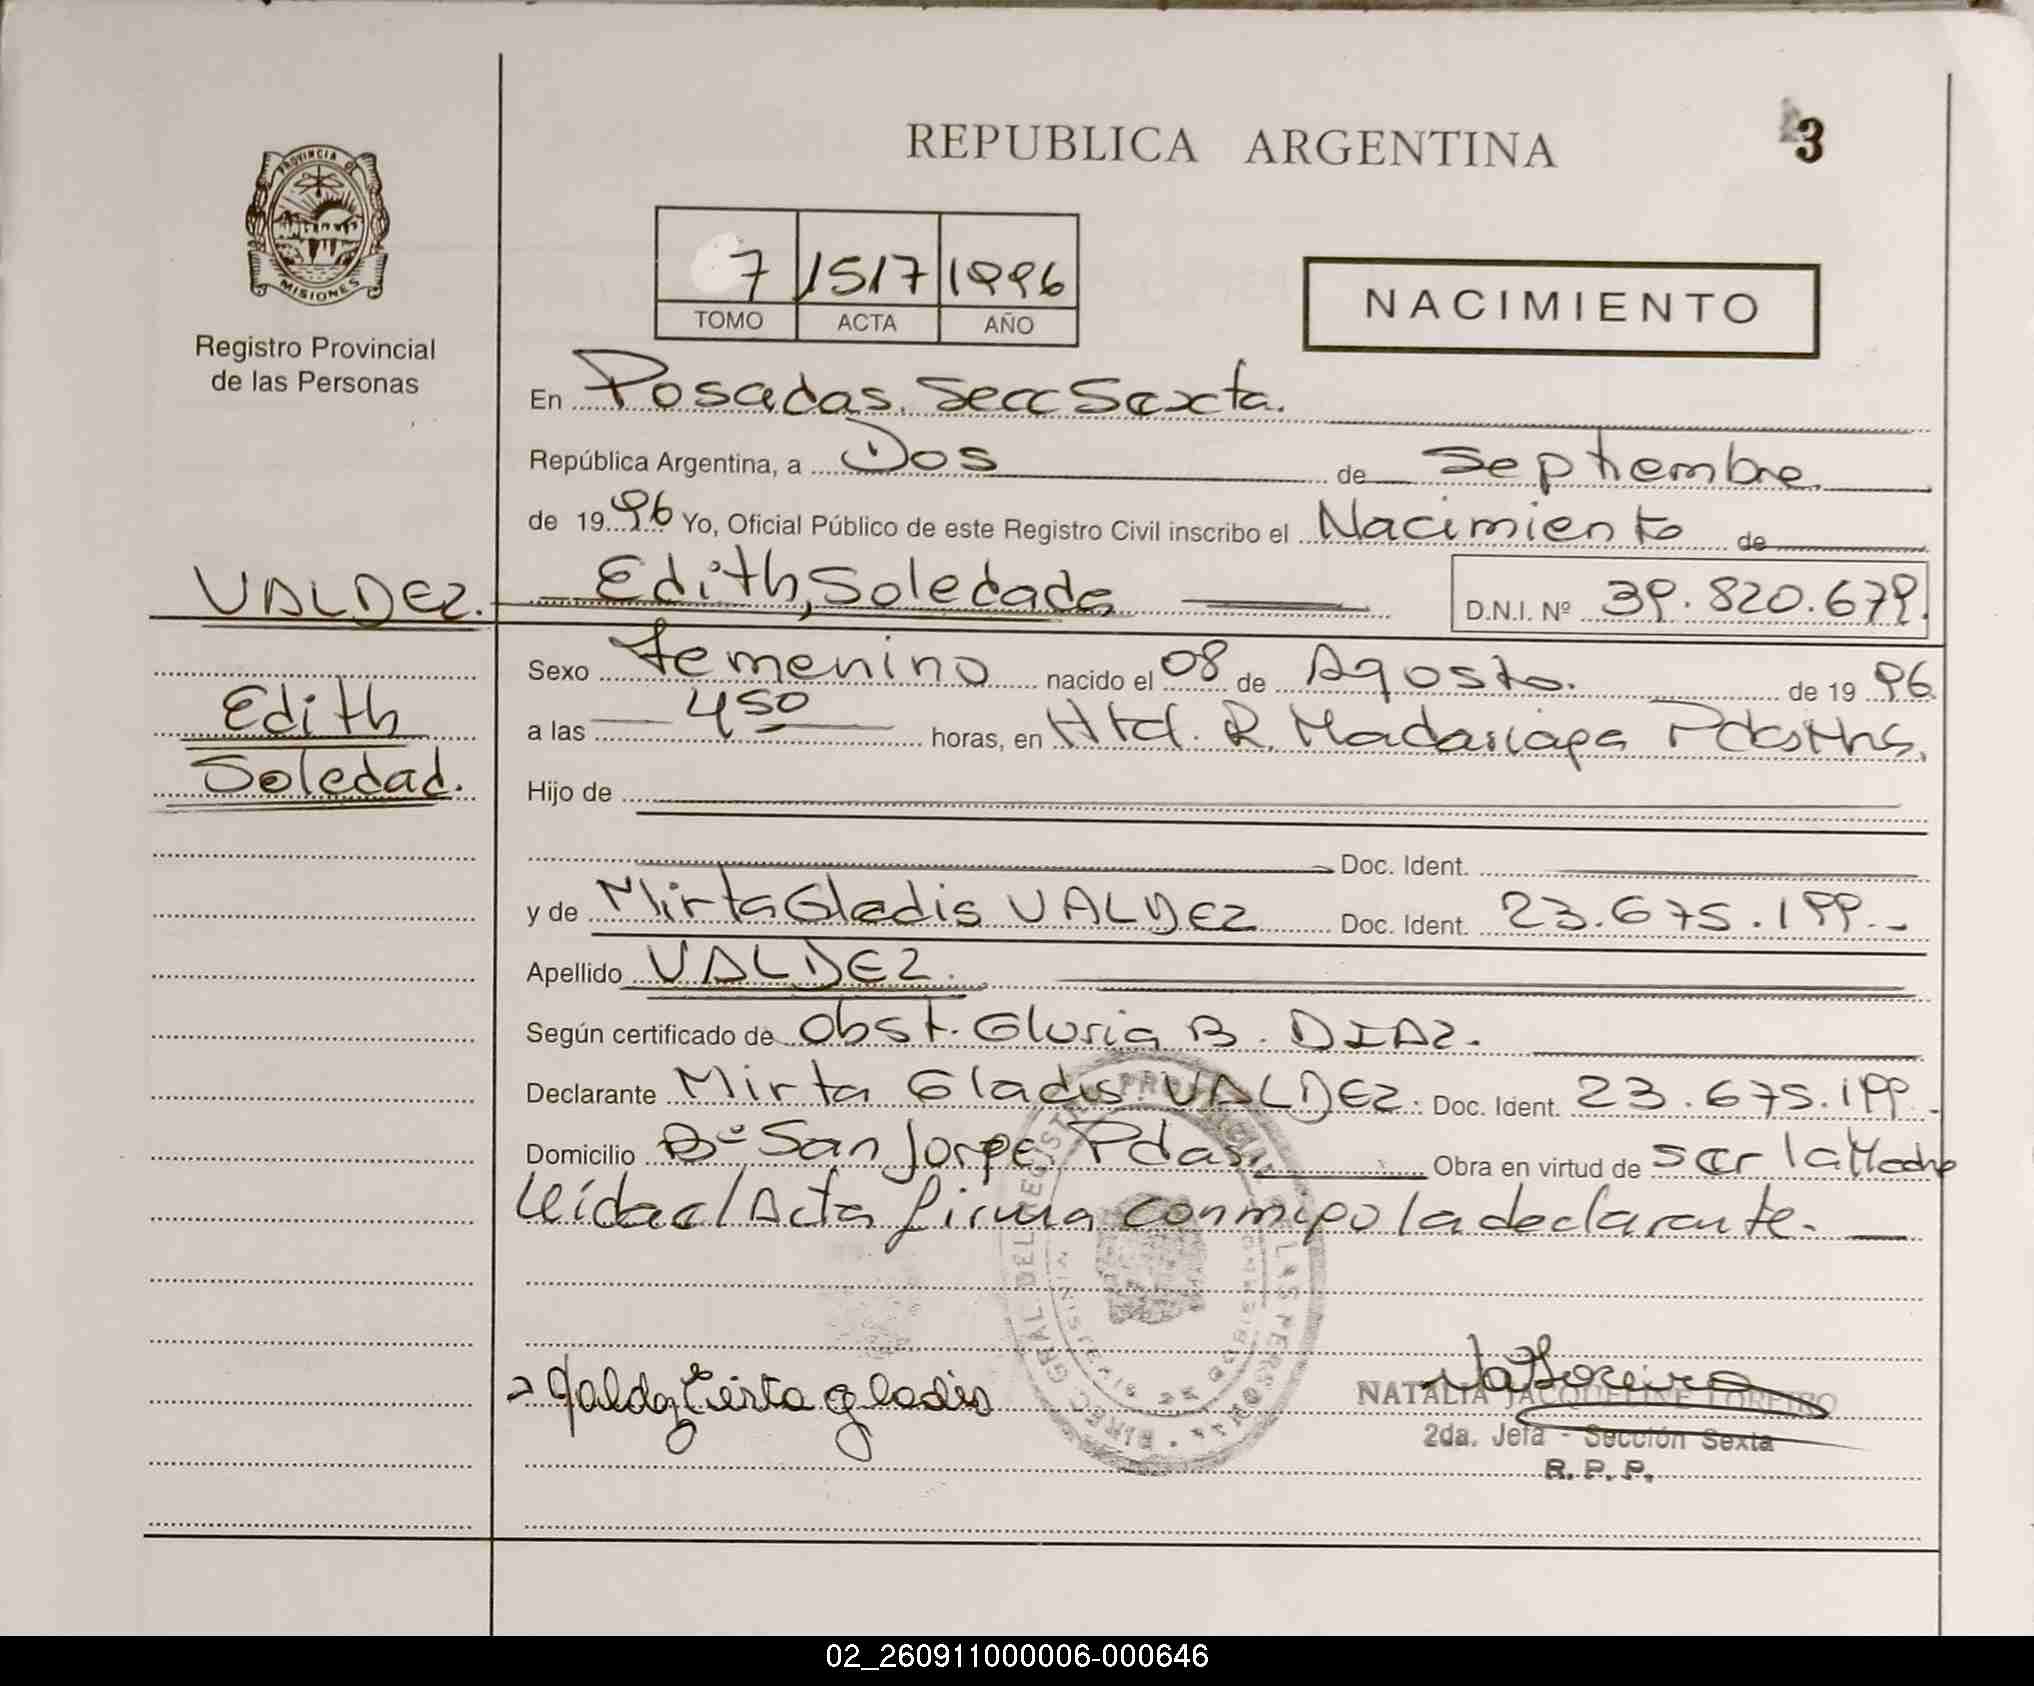 REPUBLICA ARGENTINA
3
PROVINCIA DE
MISIONES
Registro Provincial
de las Personas
7 1517 1996
TOMO ACTA AÑO
NACIMIENTO
En Posadas. Secc Sexta.
República Argentina, a Dos de Septiembre
de 1996 Yo, Oficial Público de este Registro Civil inscribo el Nacimiento de
VALDEZ. Edith, Soledad D.N.I. Nº 39.820.679.
Sexo femenino nacido el 08 de Agosto. de 19 96.
Edith
a las 450 horas, en Htal. R. Madariaga Pdas Mns.
Soledad.
Hijo de
Doc. Ident.
y de Mirta Gladis VALDEZ Doc. Ident. 23.675.199.-
Apellido VALDEZ.
Según certificado de Obst. Gloria B. DIAZ.
Declarante Mirta Gladis VALDEZ. Doc. Ident. 23.675.199.-
Domicilio Bº San Jorge Pdas. Obra en virtud de ser la Madre
leída el Acta firma conmigo la declarante.
Mirta gladis
NATALIA JACQUELINE LOREIRO
2da. Jefa - Sección Sexta
R. P. P.
02_260911000006-000646